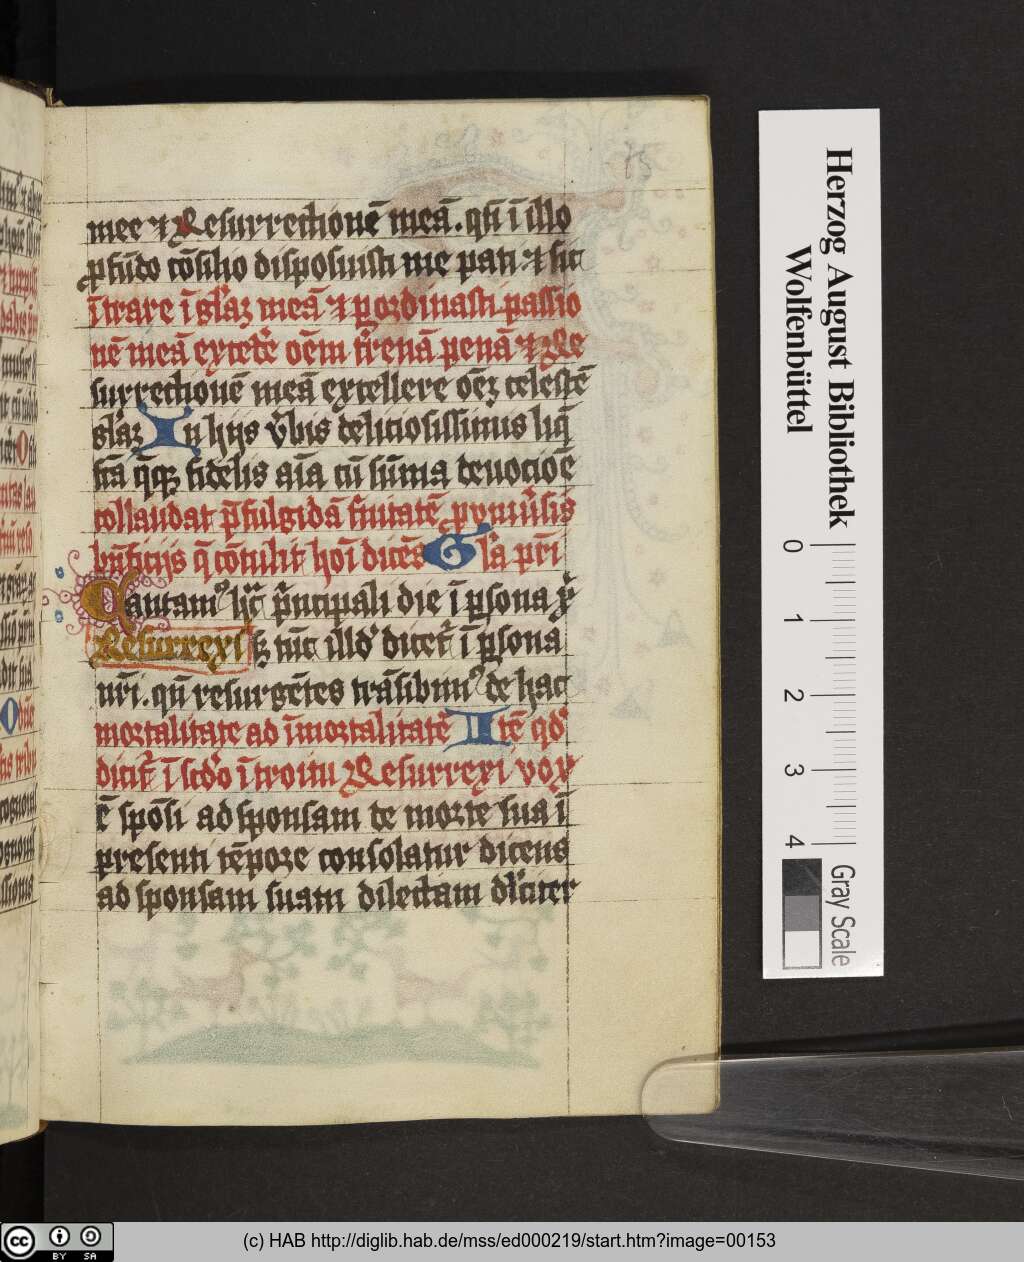 mee ⁊ Resurrectionē meā. qn̄ ī illo
ꝓfūdo cōsilio disposuisti me pati ⁊ sic
ītrare ī gl'aꝫ meā ⁊ p̱ordinasti passio
nē meā excedē oēm t'renā penā ⁊ Re
surrectionē meā excellere oēꝫ celestē
gl'aꝫ In hijs v̓bis deliciosissimis liq̄
fc̄a q̄qꝫ fidelis aīa cū sūma deuocioē
collaudat p̄fulgidā t̓nitatē ꝓ
bn̄ficijs q̄ cōtulit hoī dicēs Gl'a pr̄i
Cantamꝰ hͨ p̄ncipali die ī ꝑsona xp̄
Resurrexi sꝫ nūc illd̓ dicet̓ ī ꝑsona
nr̄i. qn̄ resurgētes trāsibimꝰ de hac
mortalitate ad īmortalitatē Itē qd̓
dicit̓ ī scd̓o ītroitu Resurrexi vox
ē spōsi ad sponsam de morte sua ī
presenti tēpore consolatur dicens
ad sponsam suam dilectam dl'citer
Herzog August Bibliothek
Wolfenbüttel
0 1 2 3 4
Gray Scale
cc BY SA
(c) HAB http://diglib.hab.de/mss/ed000219/start.htm?image=00153